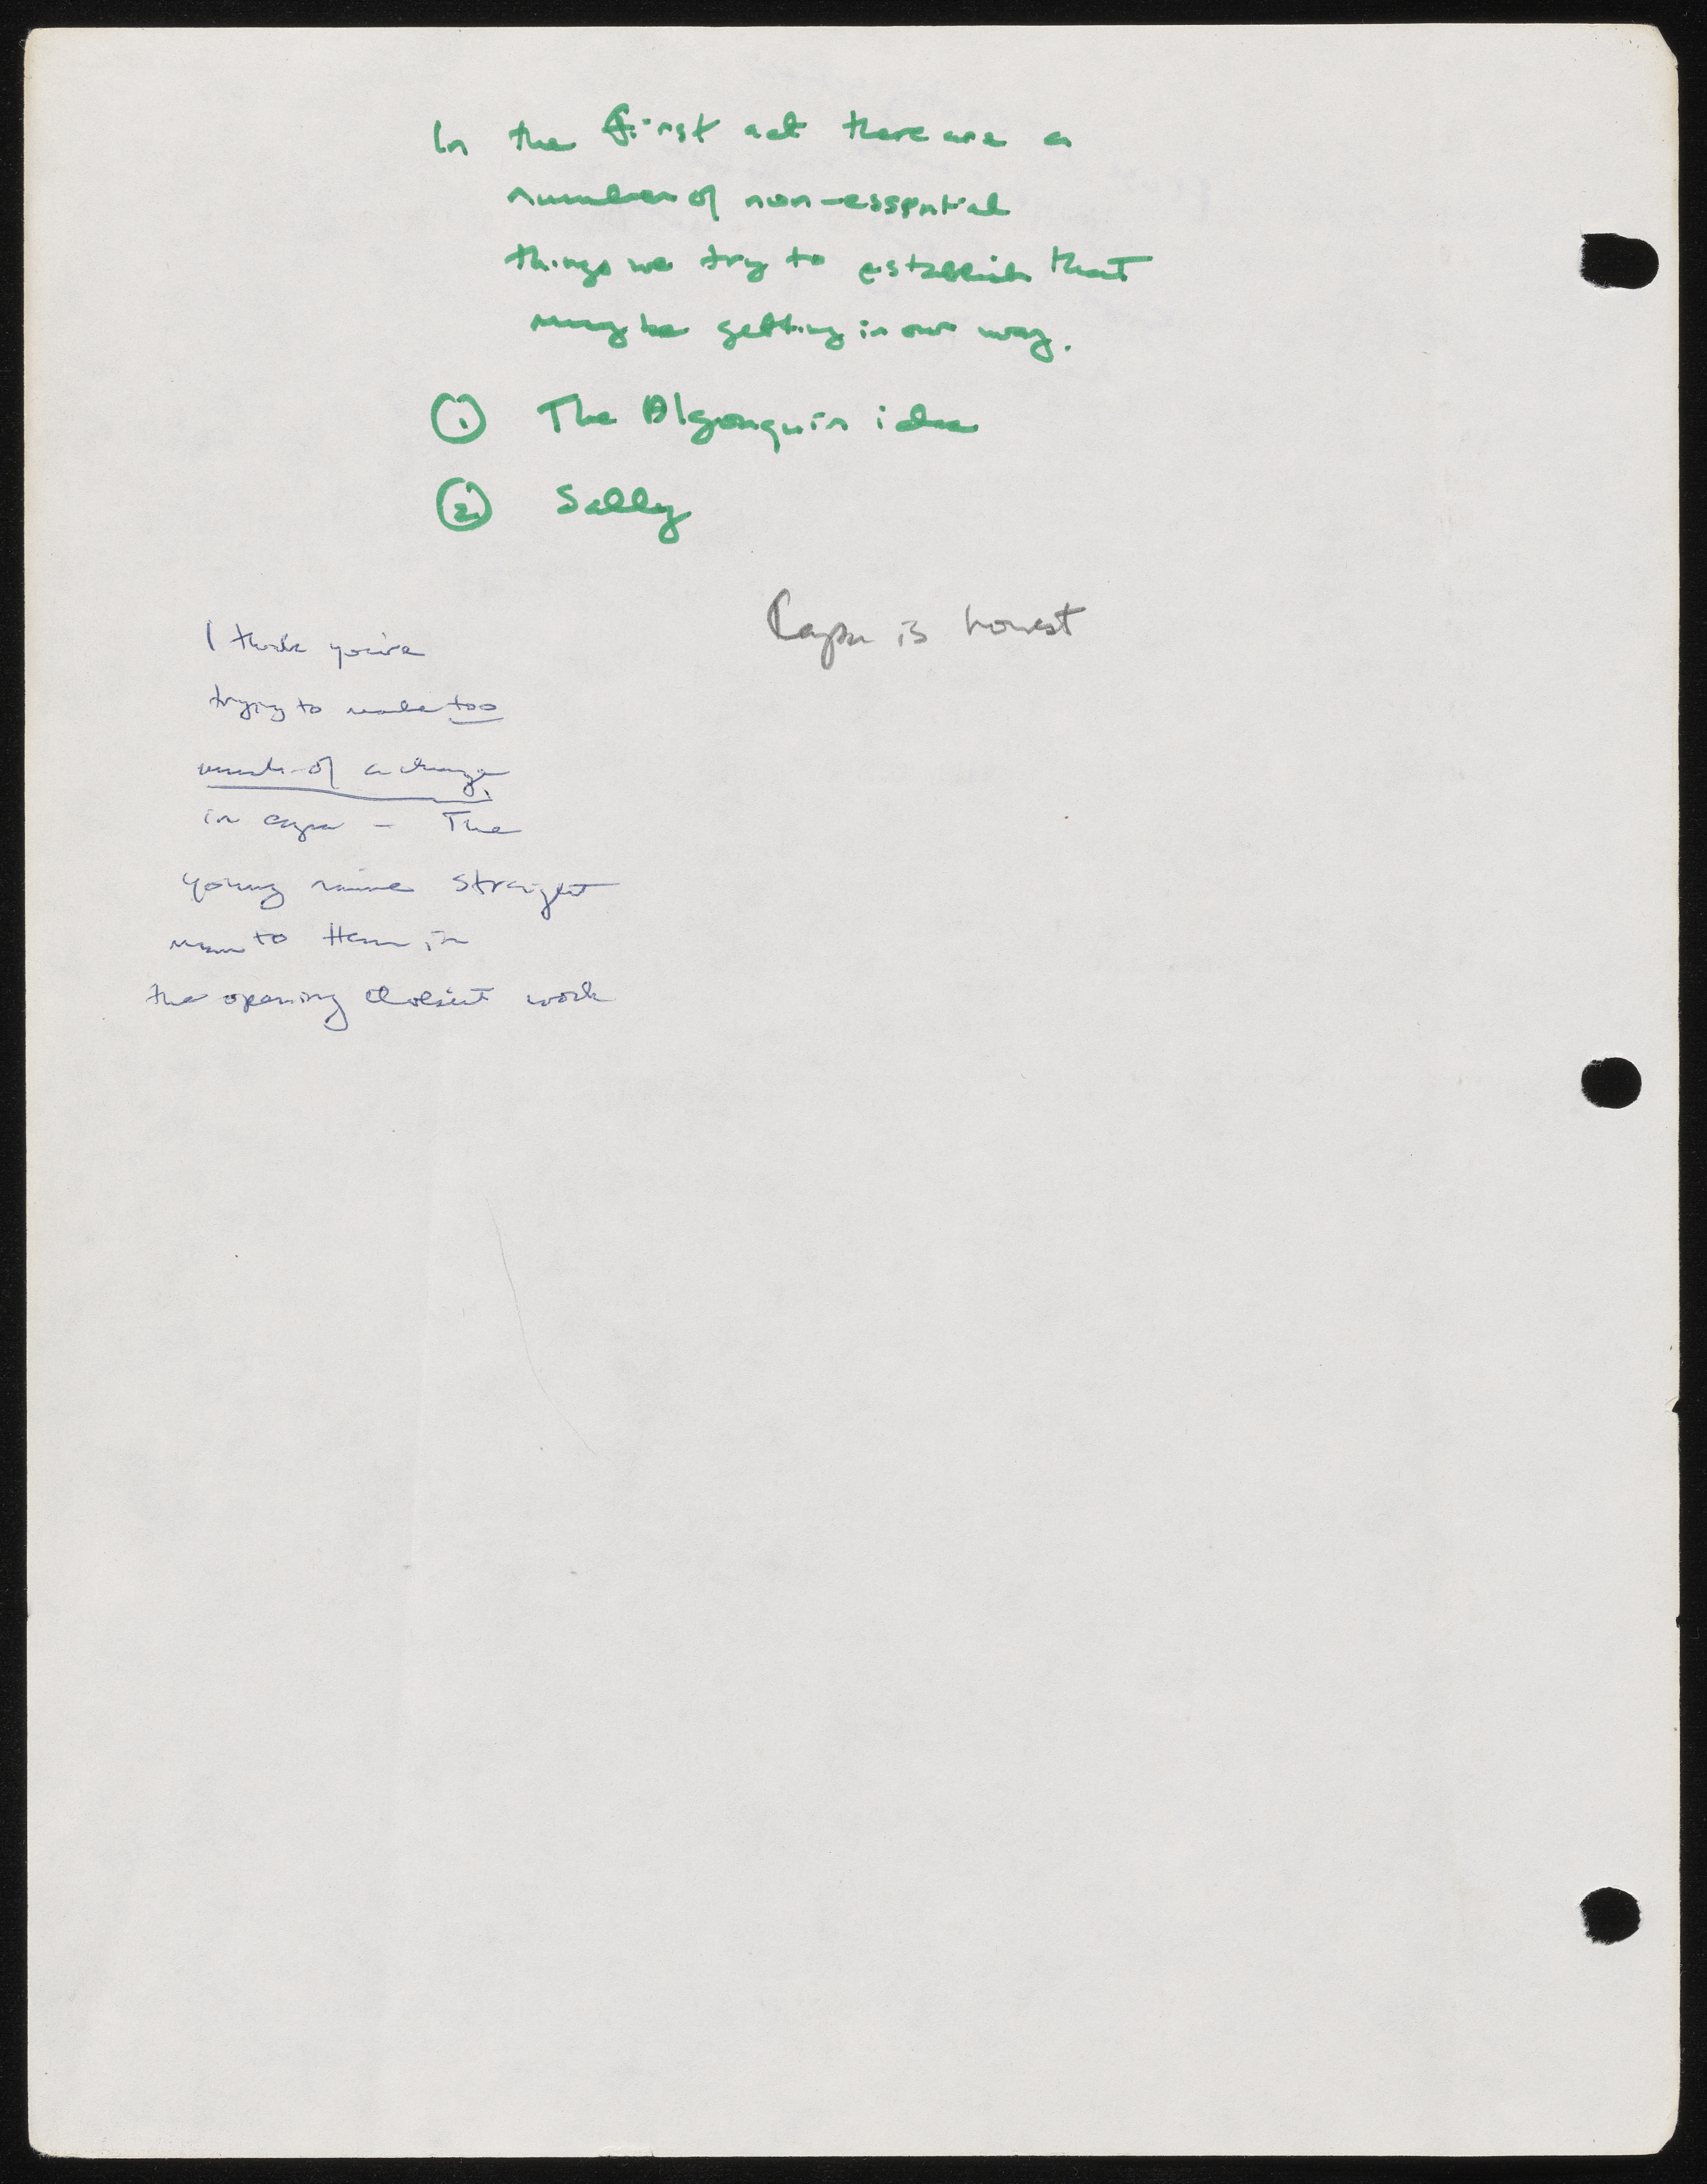 In the first act there are a
number of non-essential
things we try to establish that
may be getting in our way.
① The Algonquin idea
② Sally
Capa is honest
I think you're
trying to make too
much of a change
in capa - The
young naive straight
man to Hem in
the opening doesn't work